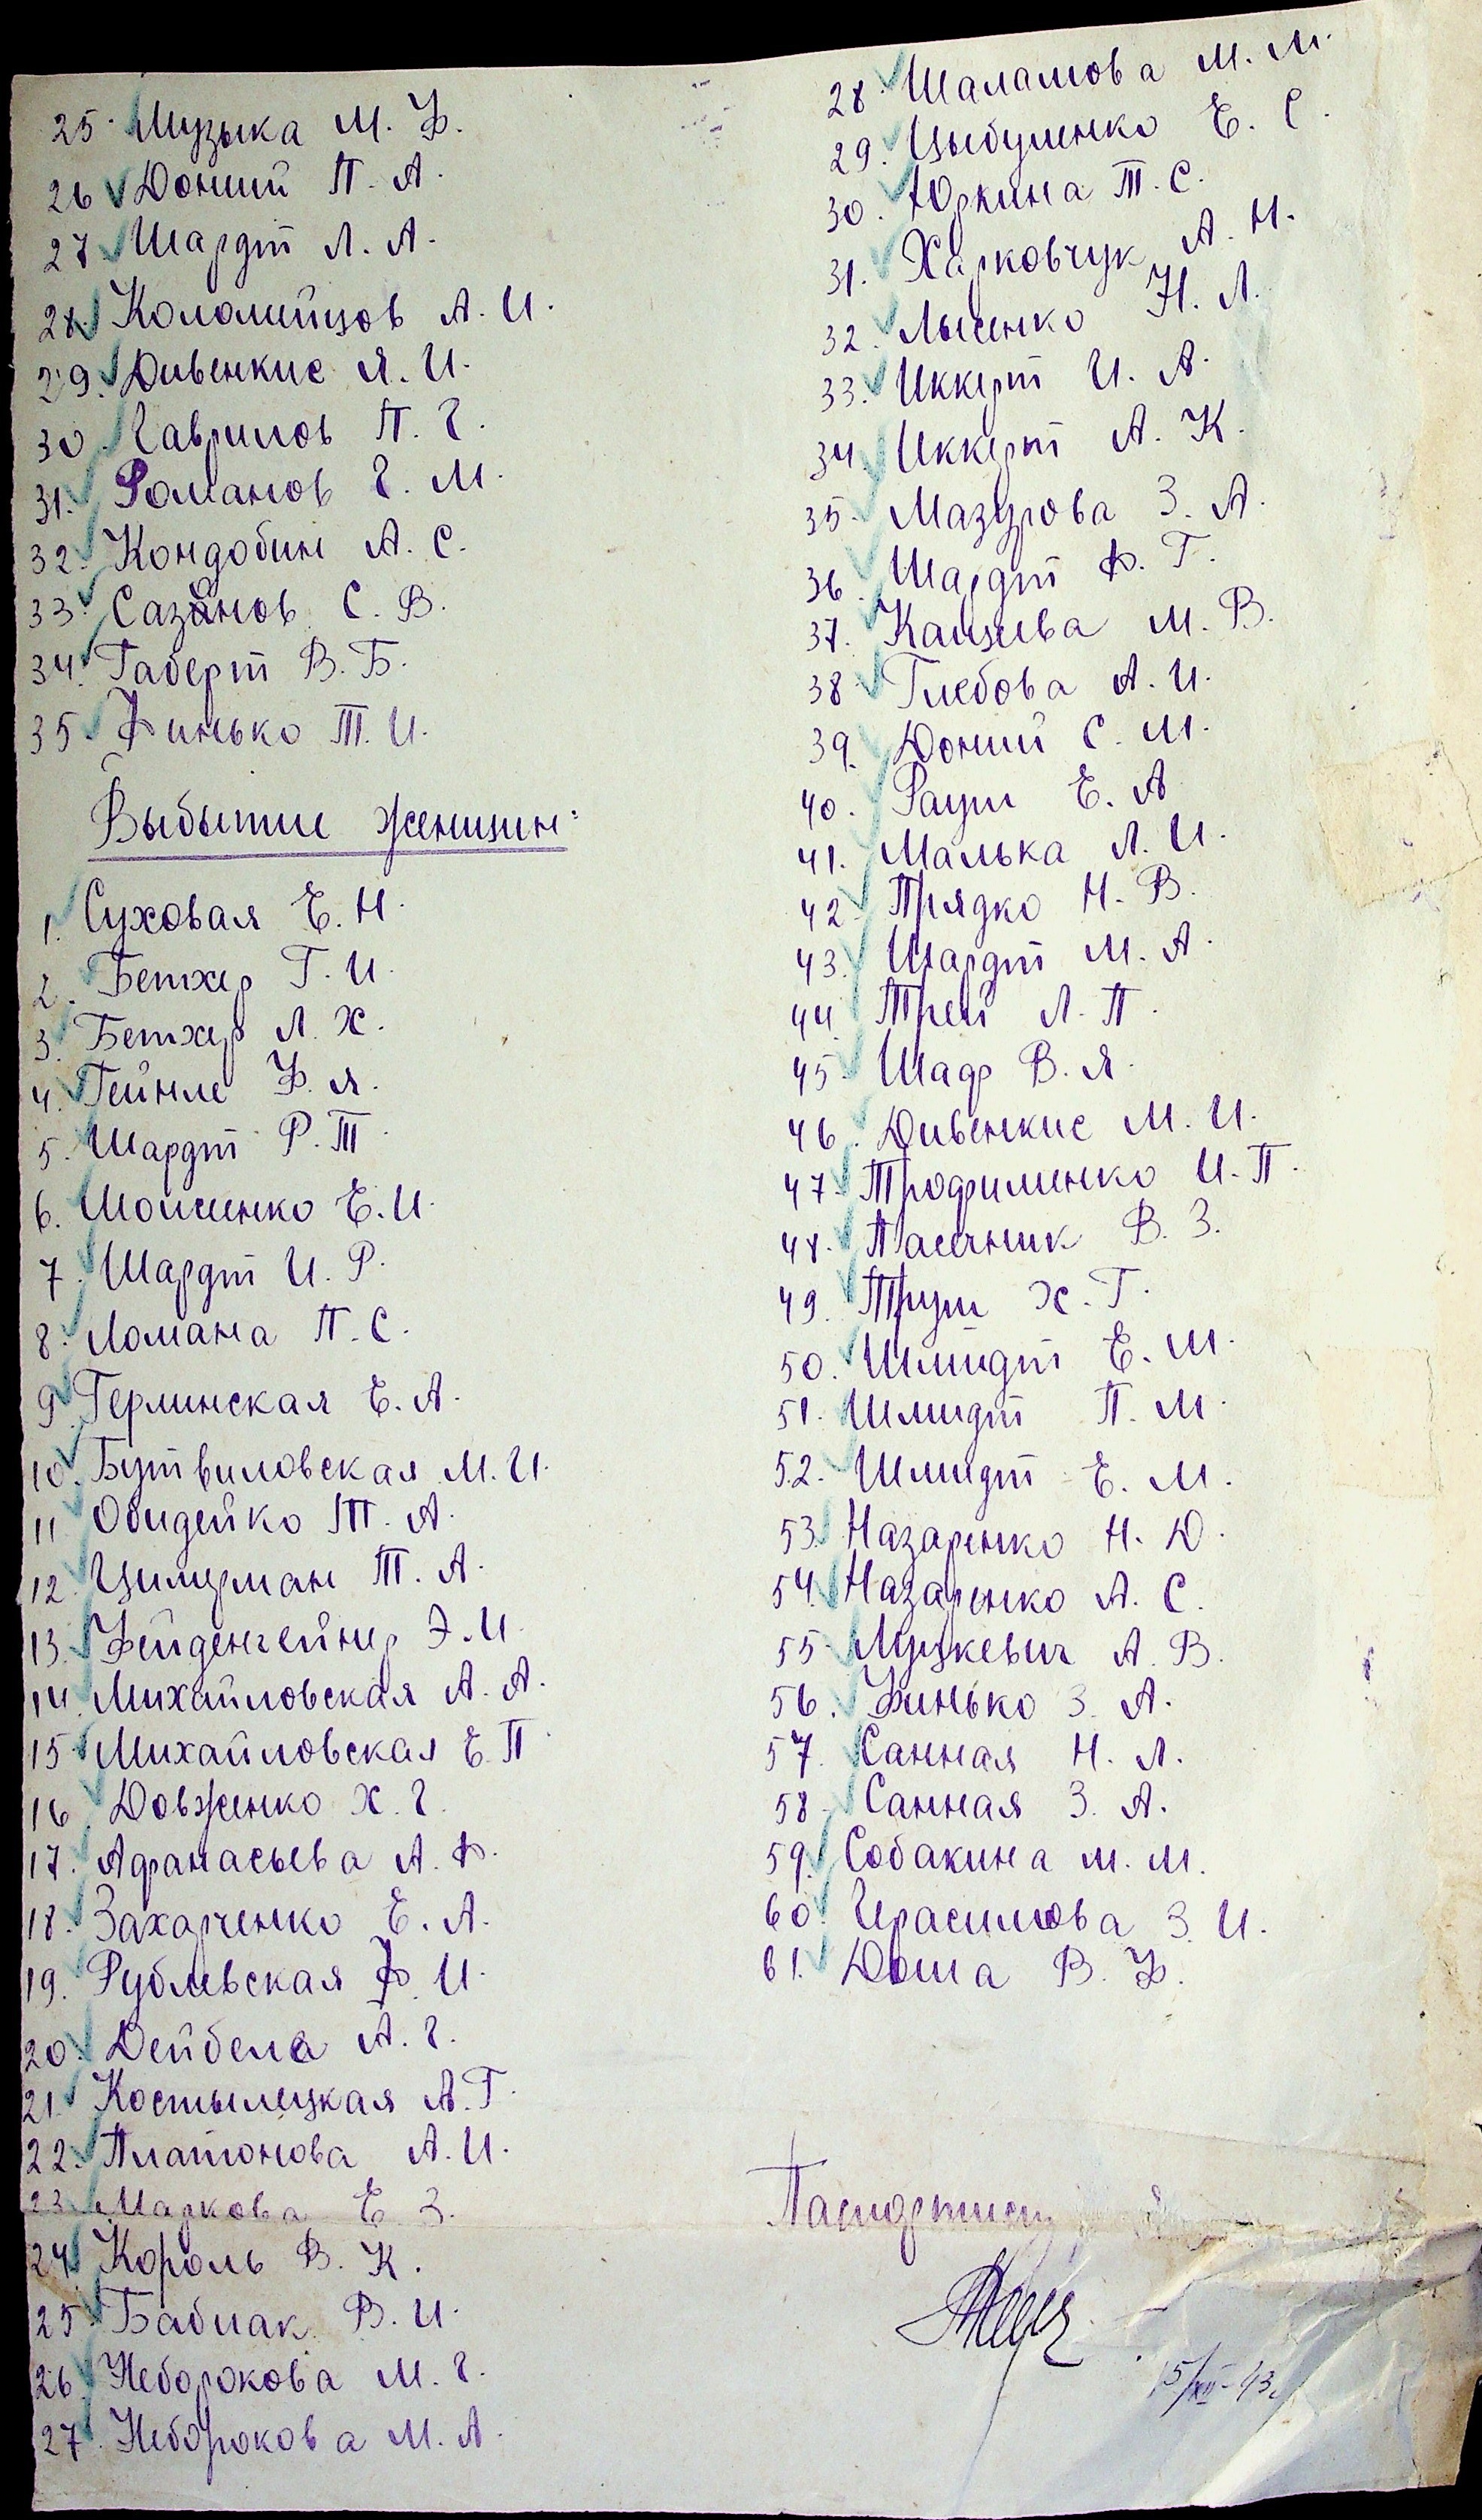 25. Музыка М. Ф.
26 Доний П. А.
27 Шардт Л. А.
28. Коломийцов А. И.
29. Дивенкис Я. И.
30 Гаврилов П. Г.
31. Романов Г. М.
32. Кондобин А. С.
33. Сазанов С. В.
34. Габерт В. Б.
35 Финько Т. И.
Выбытие женщин:
1. Суховая Е. Н.
2. Бетхер Г. И.
3. Бетхер Л. Х.
4. Гейнле Ф. Я.
5. Шардт Р. Т.
6. Моисенко Е. И.
7. Шардт И. Р.
8. Ломана П. С.
9. Герлинская Е. А.
10. Бутвиловская М. И.
11 Овидейко Т. А.
12. Цимерман Т. А.
13. Фейденгейнер Э. И.
14. Михайловская А. А.
15 Михайловская Е. П.
16. Довженко Х. Г.
17. Афанасьева А. Ф.
18. Захарченко Е. А.
19. Рублевская Ф. И.
20. Дейбела А. Г.
21. Костылецкая А. Г.
22. Платонова А. И.
23. Маркова Е. З.
24 Король В. К.
25 Бабиак В. И.
26. Неборокова М. Г.
27. Неборокова М. А.
28. Шаламова М. М.
29. Цыбуленко Е. С.
30. Юркина Т. С.
31. Харковчук А. Н.
32. Лысенко Н. Л.
33. Иккерт И. А.
34. Иккерт А. К.
35. Мазурова З. А.
36. Шардт Ф. Г.
37. Канцева М. В.
38. Глебова А. И.
39. Доний С. М.
40. Рауш Е. А.
41. Малька Л. И.
42. Прядко Н. В.
43. Шардт М. А.
44. Трей Л. П.
45 Шадр В. Я.
46. Дивенкис М. И.
47. Трофименко И. П.
48. Пасечник В. З.
49. Труш Х. Г.
50. Шмидт Е. М.
51. Шмидт П. М.
52. Шмидт Е. М.
53. Назаренко Н. Д.
54. Назаренко А. С.
55 Муцкевич А. В.
56. Финько З. А.
57. Санная Н. Л.
58. Санная З. А.
59. Собакина М. М.
60. Герасимова З. И.
61. Доша В. Ф.
Паспортист
15/XII-43г.